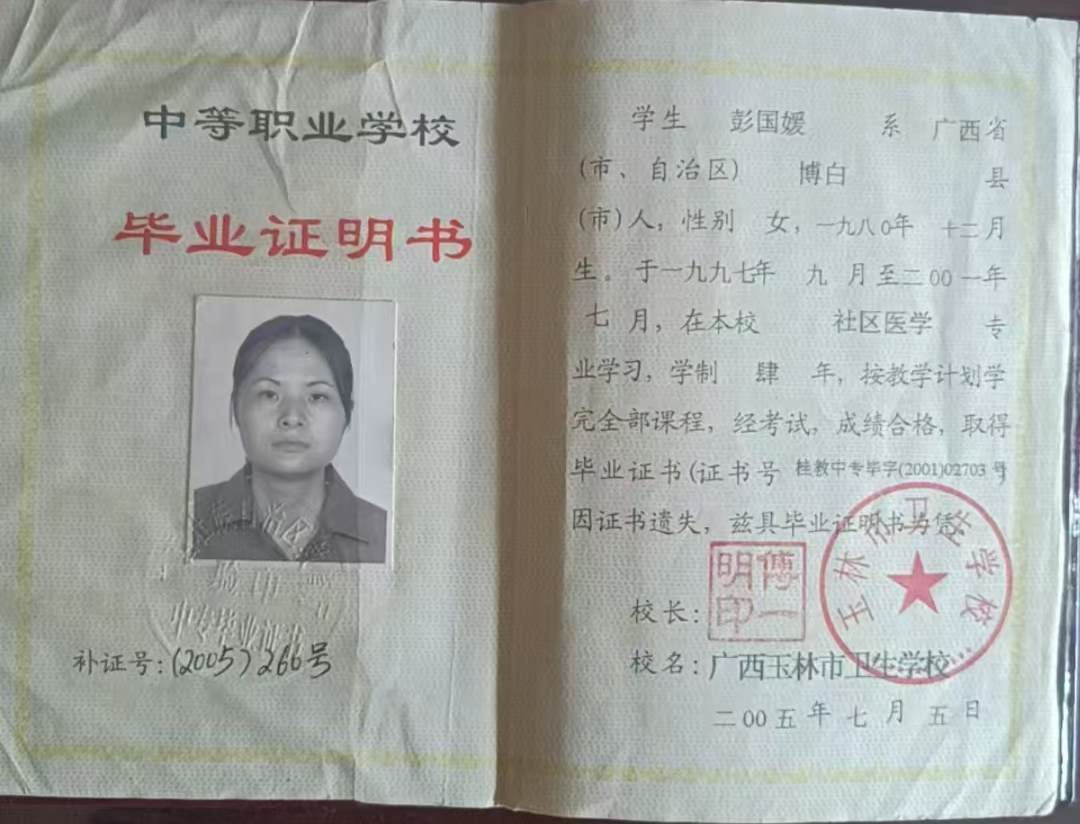 中等职业学校
毕业证明书
中专毕业证书
补证号:(2005)266号
学生 彭国媛 系 广西省
(市、自治区) 博白 县
(市)人,性别 女,一九八0年 十二月
生。于一九九七年 九 月至二00一年
七 月,在本校 社区医学 专
业学习,学制 肆 年,按教学计划学
完全部课程,经考试,成绩合格,取得
毕业证书(证书号 桂教中专毕字(2001)02703 号
因证书遗失,兹具毕业证明书为凭
玉林市卫生学校
傅一明印
校长:
校名:广西玉林市卫生学校
二00五年七月五日